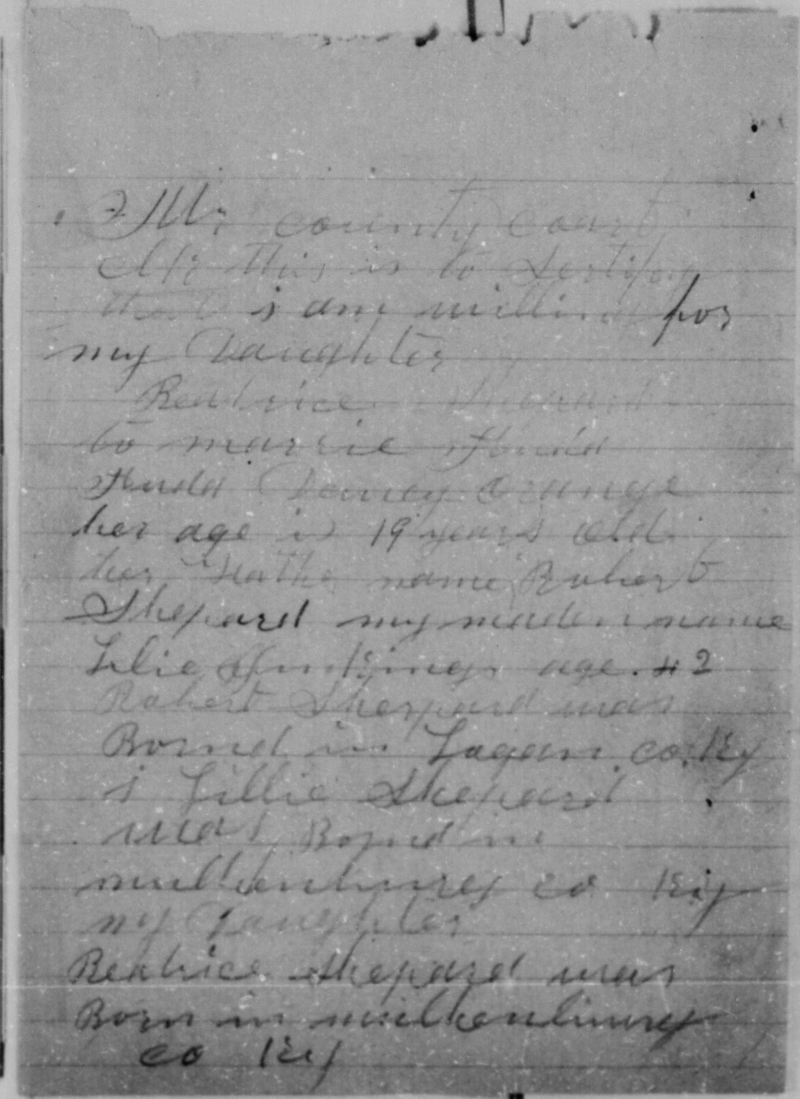 Mr county court
Mr this is to Sertify
that i am willing for
my Daughter
Beatrice Shepard
to marrie
Orange
her age is 19 years old
her name Robert
Shepard my maden name
Lelie age 42
Robert Sheppard was
Bornd in Logan co. Ky
i Lillie Shepard
was Bornd in
mulhenburey co Ky
my Daughter
Beatrice Shepard was
Born in mulhenburey
co Ky